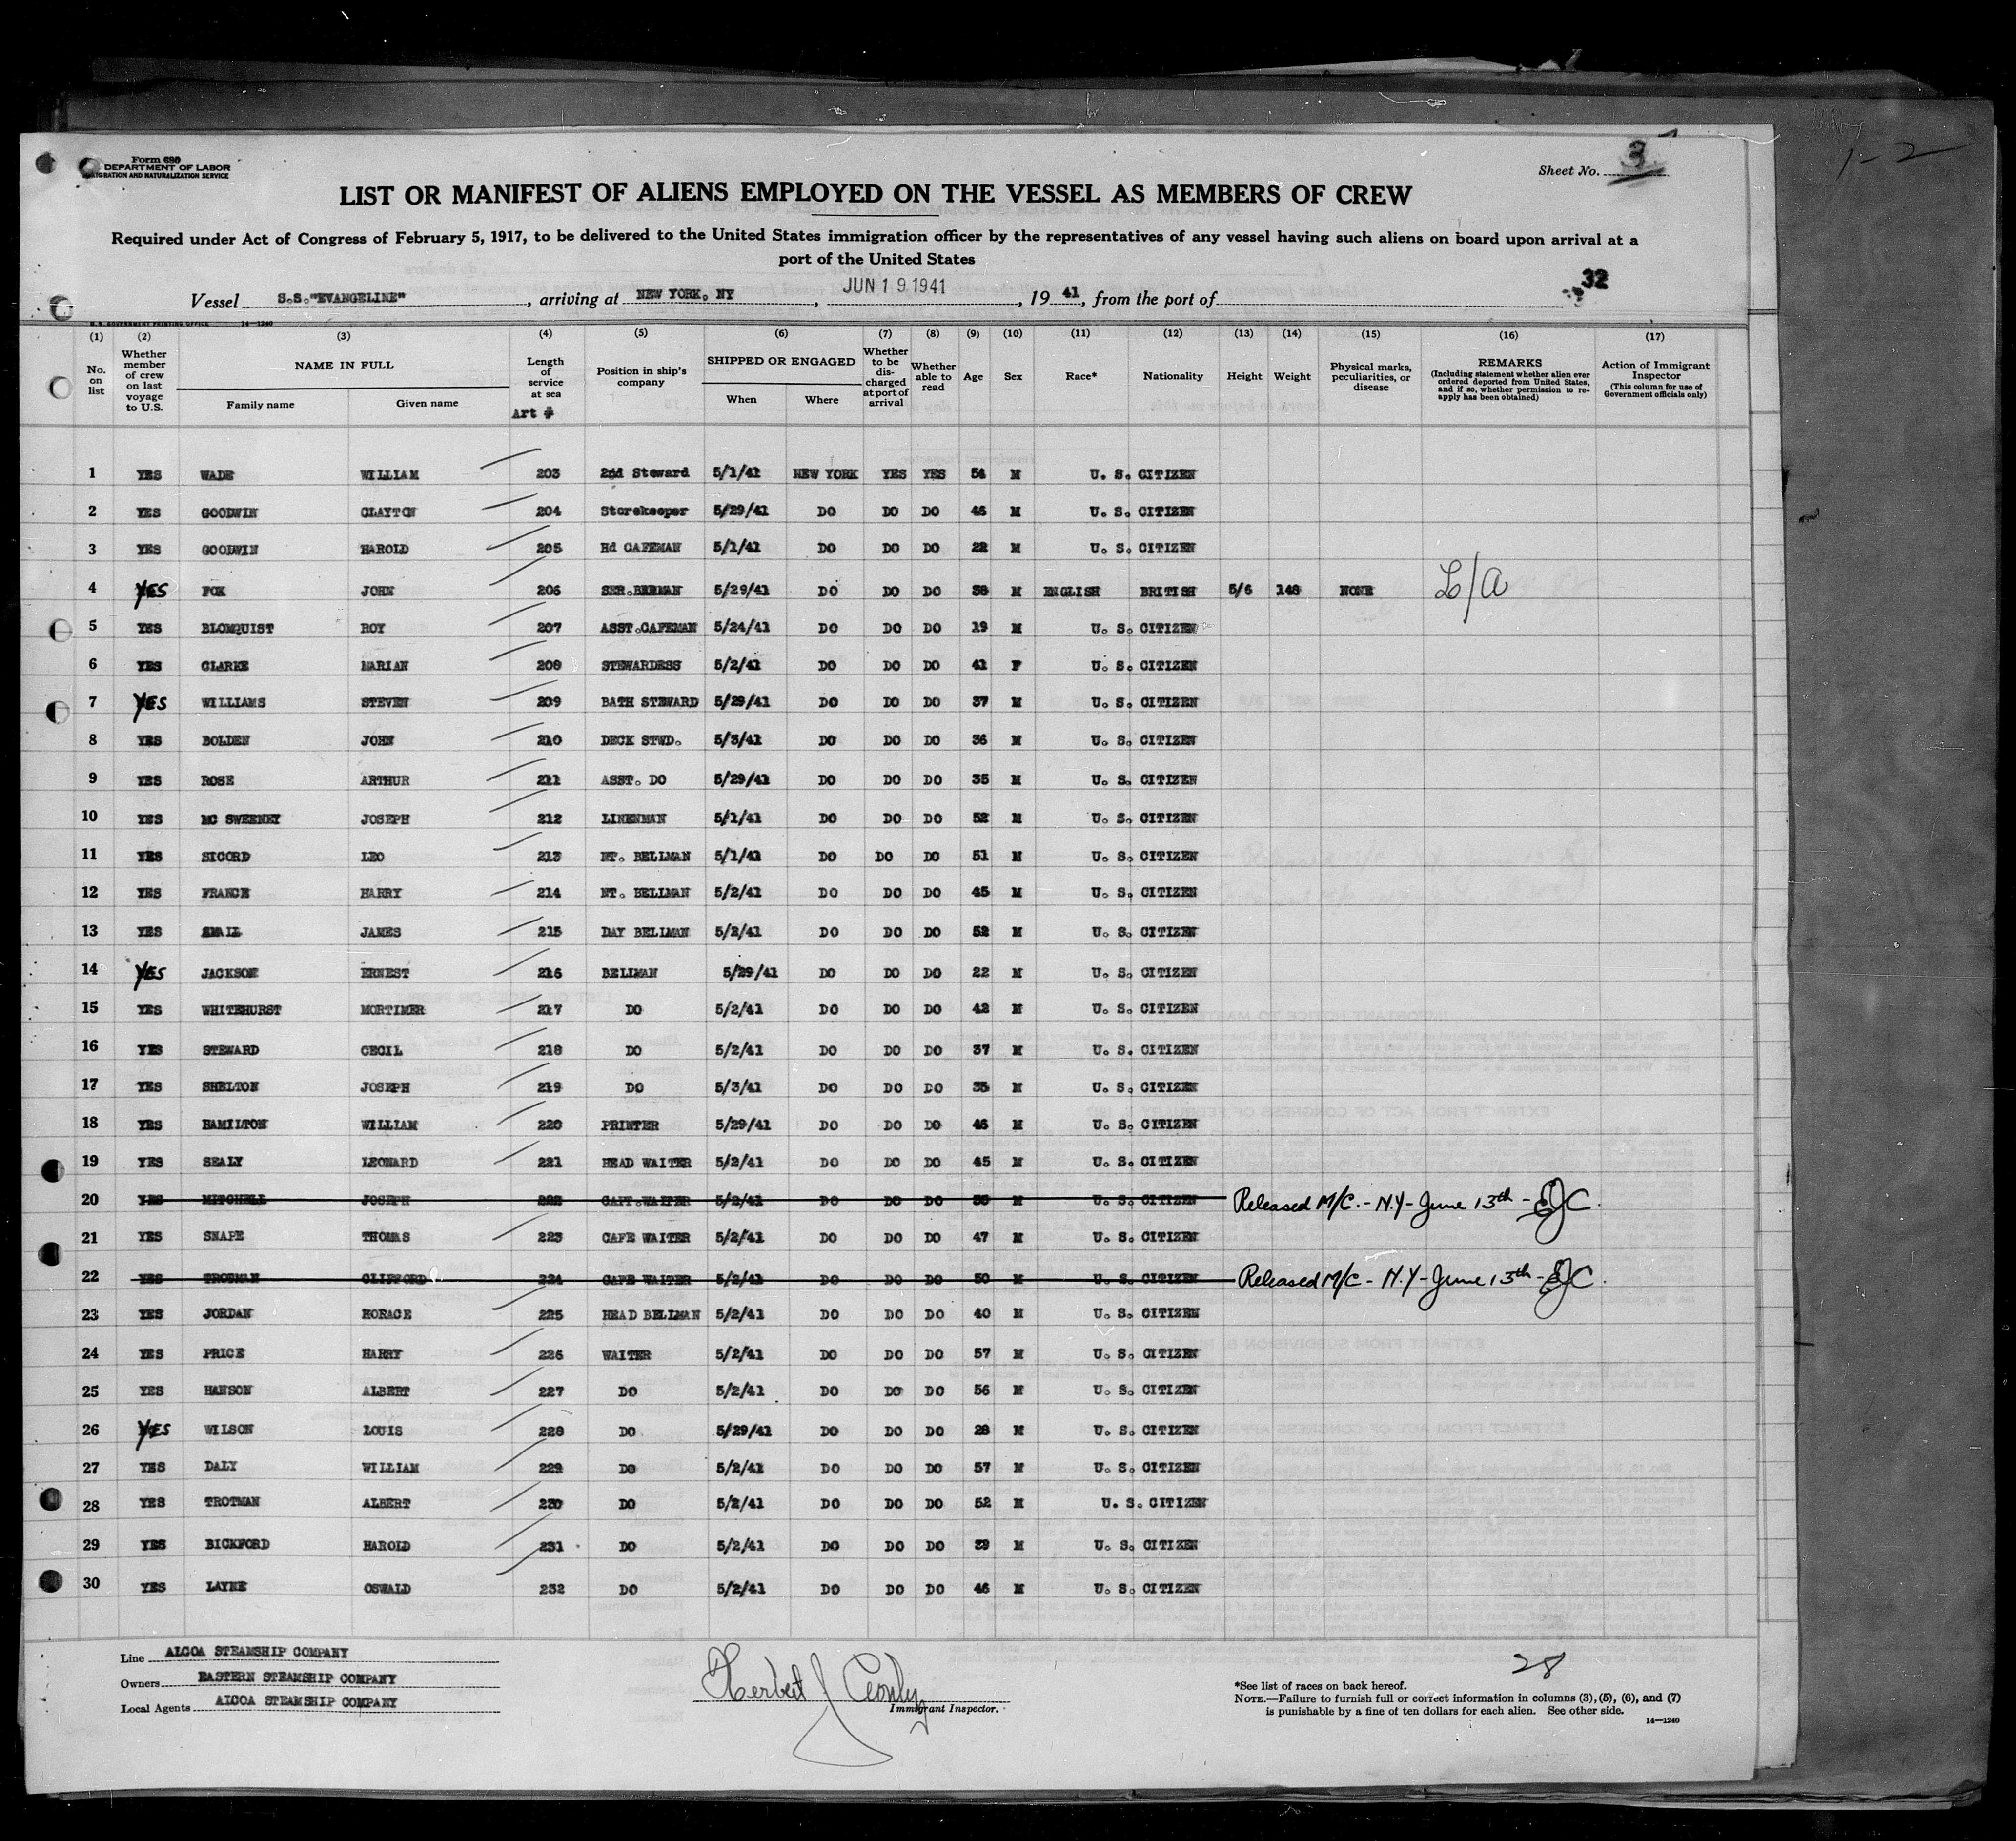 Form 680
DEPARTMENT OF LABOR
IMMIGRATION AND NATURALIZATION SERVICE
Sheet No. 3
1-2
LIST OR MANIFEST OF ALIENS EMPLOYED ON THE VESSEL AS MEMBERS OF CREW
Required under Act of Congress of February 5, 1917, to be delivered to the United States immigration officer by the representatives of any vessel having such aliens on board upon arrival at a
port of the United States
32
Vessel S.S."EVANGELINE", arriving at NEW YORK, NY, JUN 19 1941, 19 41, from the port of
U. S. GOVERNMENT PRINTING OFFICE 14—1240
(1) (2) (3) (4) (5) (6) (7) (8) (9) (10) (11) (12) (13) (14) (15) (16) (17)
No. on list
Whether member of crew on last voyage to U.S.
NAME IN FULL
Family name Given name
Length of service at sea
Art #
Position in ship's company
SHIPPED OR ENGAGED
When Where
Whether to be discharged at port of arrival
Whether able to read
Age
Sex
Race*
Nationality
Height
Weight
Physical marks, peculiarities, or disease
REMARKS
(Including statement whether alien ever ordered deported from United States, and if so, whether permission to reapply has been obtained)
Action of Immigrant Inspector
(This column for use of Government officials only)
1 YES WADE WILLIAM 203 2nd Steward 5/1/41 NEW YORK YES YES 54 M U. S. CITIZEN
2 YES GOODWIN CLAYTON 204 Storekeeper 5/29/41 DO DO DO 45 M U. S. CITIZEN
3 YES GOODWIN HAROLD 205 Hd CAFEMAN 5/1/41 DO DO DO 22 M U. S. CITIZEN
4 YES FOX JOHN 206 SER.BARMAN 5/29/41 DO DO DO 38 M ENGLISH BRITISH 5/6 148 NONE L/A
5 YES BLOMQUIST ROY 207 ASST.CAFEMAN 5/24/41 DO DO DO 19 M U. S. CITIZEN
6 YES CLARKE MARIAN 208 STEWARDESS 5/2/41 DO DO DO 41 F U. S. CITIZEN
7 YES WILLIAMS STEVEN 209 BATH STEWARD 5/29/41 DO DO DO 37 M U. S. CITIZEN
8 YES BOLDEN JOHN 210 DECK STWD. 5/3/41 DO DO DO 36 M U. S. CITIZEN
9 YES ROSE ARTHUR 211 ASST. DO 5/29/41 DO DO DO 35 M U. S. CITIZEN
10 YES MC SWEENEY JOSEPH 212 LINENMAN 5/1/41 DO DO DO 52 M U. S. CITIZEN
11 YES SICORD LEO 213 NT. BELLMAN 5/1/41 DO DO DO 51 M U. S. CITIZEN
12 YES FRANCE HARRY 214 NT. BELLMAN 5/2/41 DO DO DO 45 M U. S. CITIZEN
13 YES JAMES 215 DAY BELLMAN 5/2/41 DO DO DO 52 M U. S. CITIZEN
14 YES JACKSON ERNEST 216 BELLMAN 5/29/41 DO DO DO 22 M U. S. CITIZEN
15 YES WHITEHURST MORTIMER 217 DO 5/2/41 DO DO DO 42 M U. S. CITIZEN
16 YES STEWARD CECIL 218 DO 5/2/41 DO DO DO 37 M U. S. CITIZEN
17 YES SHELTON JOSEPH 219 DO 5/3/41 DO DO DO 35 M U. S. CITIZEN
18 YES HAMILTON WILLIAM 220 PRINTER 5/29/41 DO DO DO 46 M U. S. CITIZEN
19 YES SEALY LEONARD 221 HEAD WAITER 5/2/41 DO DO DO 45 M U. S. CITIZEN
20 YES MITCHELL JOSEPH 222 CAPT.WAITER 5/2/41 DO DO DO M U. S. CITIZEN Released M/C. - N.Y - June 13th - EJC.
21 YES SNAPE THOMAS 223 CAFE WAITER 5/2/41 DO DO DO 47 M U. S. CITIZEN
22 YES TROTMAN CLIFFORD 224 CAFE WAITER 5/2/41 DO DO DO 50 M U. S. CITIZEN Released M/C - N.Y - June 13th - EJC.
23 YES JORDAN HORACE 225 HEAD BELLMAN 5/2/41 DO DO DO 40 M U. S. CITIZEN
24 YES PRICE HARRY 226 WAITER 5/2/41 DO DO DO 57 M U. S. CITIZEN
25 YES HANSON ALBERT 227 DO 5/2/41 DO DO DO 56 M U. S. CITIZEN
26 YES WILSON LOUIS 228 DO 5/29/41 DO DO DO 28 M U. S. CITIZEN
27 YES DALY WILLIAM 229 DO 5/2/41 DO DO DO 57 M U. S. CITIZEN
28 YES TROTMAN ALBERT 230 DO 5/2/41 DO DO DO 52 M U. S. CITIZEN
29 YES BICKFORD HAROLD 231 DO 5/2/41 DO DO DO 39 M U. S. CITIZEN
30 YES LAYNE OSWALD 232 DO 5/2/41 DO DO DO 46 M U. S. CITIZEN
Line ALCOA STEAMSHIP COMPANY
Owners EASTERN STEAMSHIP COMPANY
Local Agents ALCOA STEAMSHIP COMPANY
Herbert J
Immigrant Inspector.
28
*See list of races on back hereof.
NOTE.—Failure to furnish full or correct information in columns (3), (5), (6), and (7)
is punishable by a fine of ten dollars for each alien. See other side.
14—1240